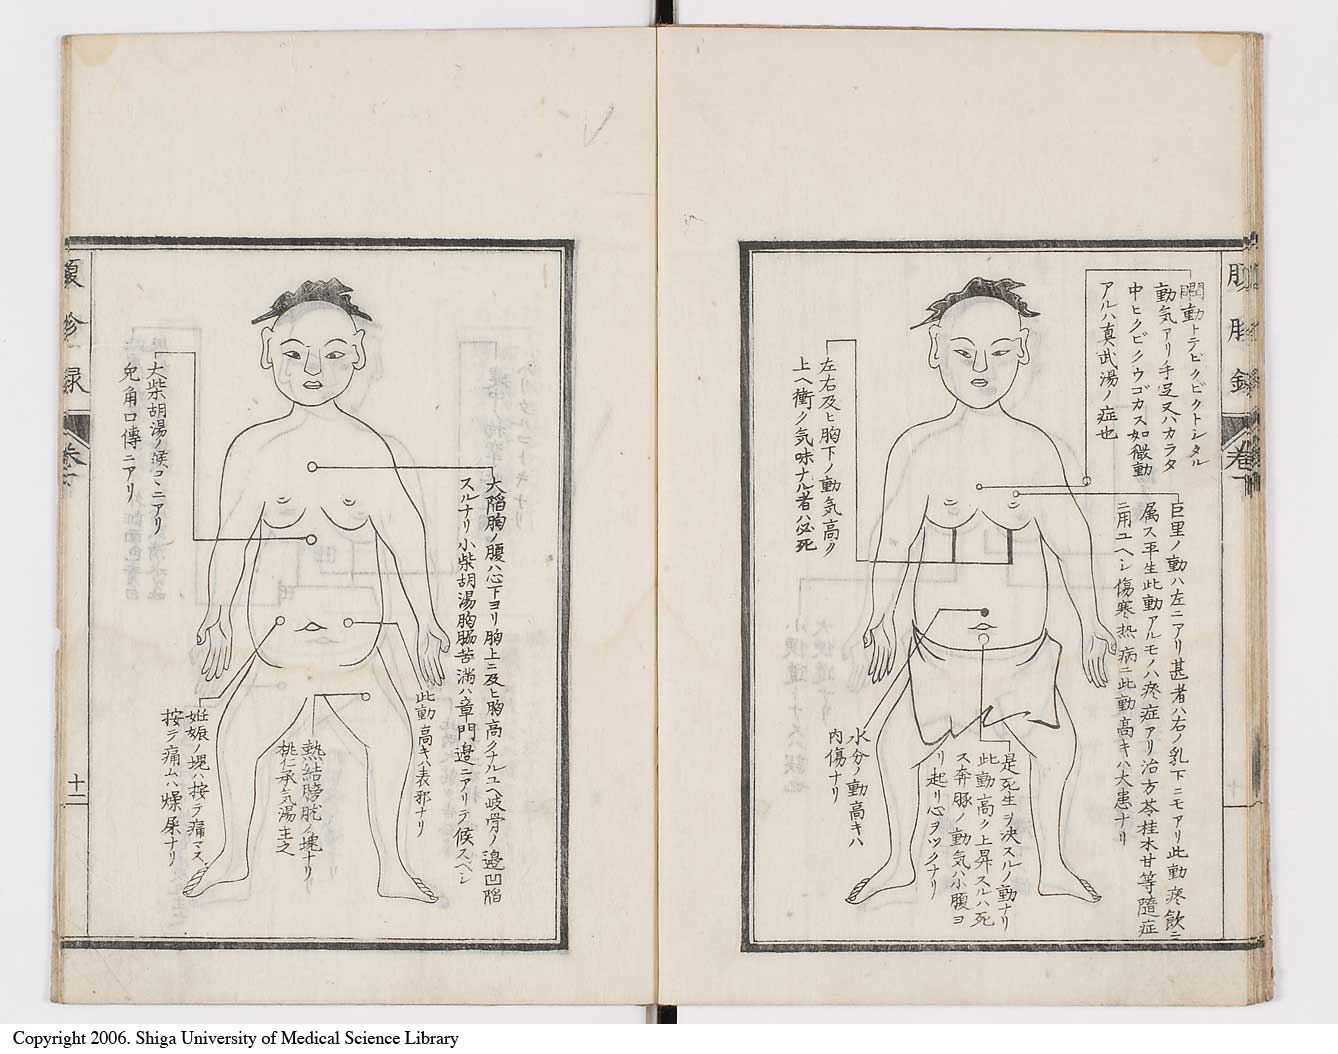 瞤動トテビクビクトシタル
動気アリ手足又ハカラタ
中ヒクビクウゴカス如微動
アルハ真武湯ノ症也
巨里ノ動ハ左ニアリ甚者ハ右ノ乳下ニモアリ此動疼飲ニ
属ス平生此動アルモノハ疼症アリ治方苓桂木甘等隨症
ニ用ユヘシ傷寒热病ニ此動高キハ大患ナリ
左右及ヒ胸下ノ動気高ク
上ヘ衝ク気味ナル者ハ必死
是死生ヲ决スルノ動ナリ
此動高ク上昇スルハ死
ス奔豚ノ動気ハ小腹ヨ
リ起リ心ヲツクナリ
水分ノ動高キハ
内傷ナリ
十
大陷胸ノ腹ハ心下ヨリ胸上ニ及ヒ胸高クナルユヘ岐骨ノ邉凹陷
スルナリ小柴胡湯胸脇苦滿ハ章門邉ニアリテ候スベシ
此動高キハ表邪ナリ
熱結膀胱ノ塊ナリ
桃仁承気湯主之
妊娠ノ塊ハ按テ痛マス
按テ痛ムハ燥屎ナリ
大柴胡湯ノ候コヽニアリ
免角口傳ニアリ
腹診録
卷
十二
Copyright 2006. Shiga University of Medical Science Library